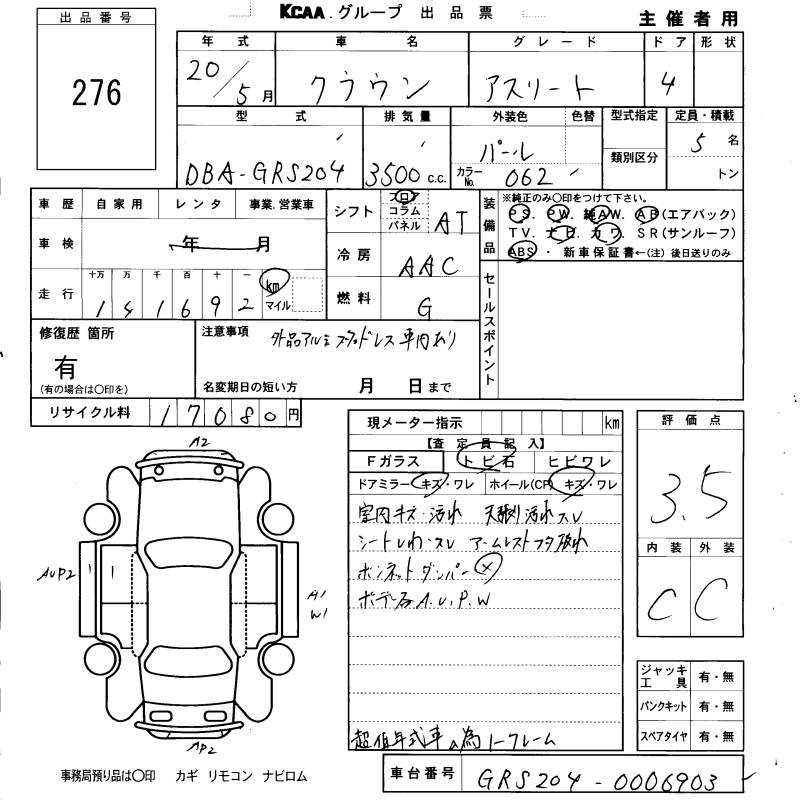 出品番号
276
KCAA.グループ 出品票
主催者用
年式 車名 グレード ドア 形状
20/5月 クラウン アスリート 4
型式 排気量 外装色 色替 型式指定 定員・積載
DBA-GRS204 3500c.c. パール カラーNo. 062 類別区分 5名 トン
車歴 自家用 レンタ 事業.営業車
車検 年 月
走行 十万 万 千 百 十 一
141692 km マイル
シフト フロア コラム パネル AT
冷房 AAC
燃料 G
装備品 ※純正のみ〇印をつけて下さい。
PS. PW. 純AW. AB(エアバック)
TV. ナビ. カワ. SR(サンルーフ)
ABS・新車保証書←(注)後日送りのみ
セールスポイント
修復歴 箇所
有
(有の場合は〇印を)
注意事項 外品アルミ スタッドレス車内あり
名変期日の短い方 月 日まで
リサイクル料 17080円
現メーター指示 km
【査定員記入】
Fガラス トビ石 ヒビワレ
ドアミラー キズ・ワレ ホイール(CP) キズ・ワレ
室内キズ・汚れ 天張り汚れスレ
シートしわ・スレ アームレストフタ破れ
ボンネットダンパー×
ボデー各A.U.P.W
超低年式車の為ノークレーム
評価点
3.5
内装 外装
C C
ジャッキ工具 有・無
パンクキット 有・無
スペアタイヤ 有・無
A2
AUP2
A1
W1
AP2
事務局預り品は〇印 カギ リモコン ナビロム
車台番号 GRS204-0006903